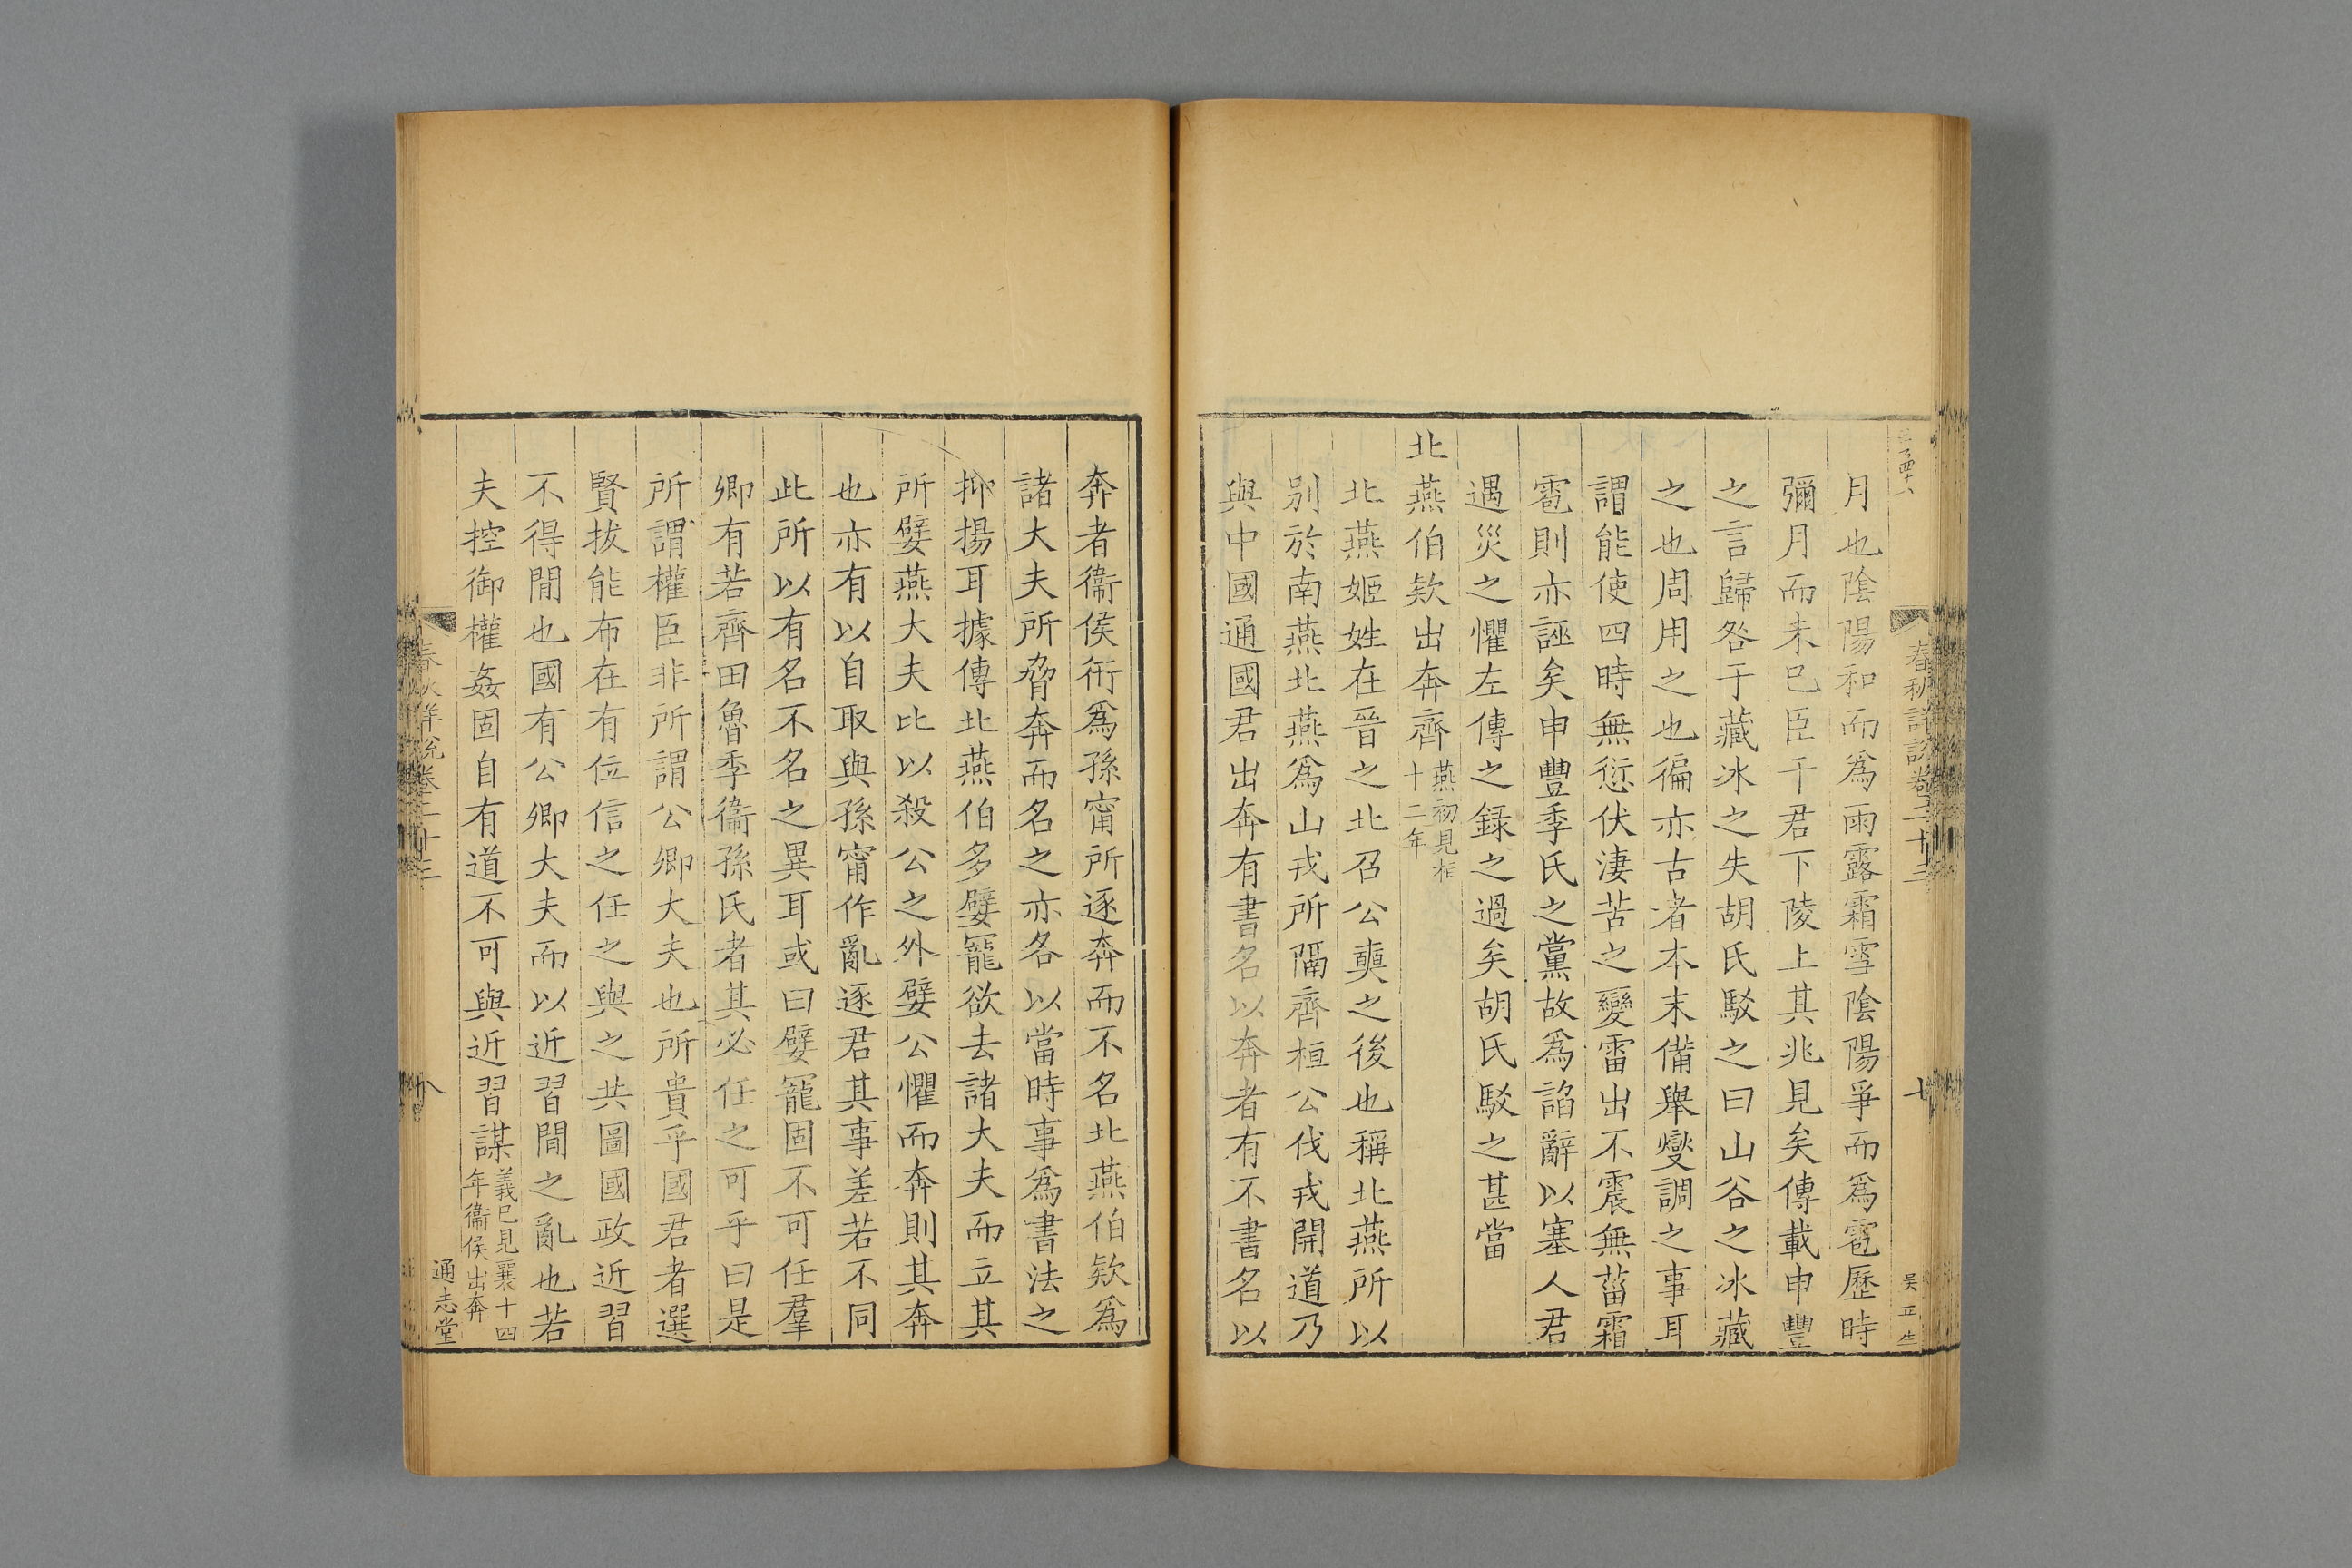 春秋詳說卷二十三
七
吴正生
月也陰陽和而爲雨露霜雪陰陽爭而爲雹歷時
彌月而未已臣干君下陵上其兆見矣傳載申豐
之言歸咎于藏冰之失胡氏駁之曰山谷之冰藏
之也周用之也徧亦古者本末備舉燮調之事耳
謂能使四時無愆伏淒苦之變雷出不震無菑霜
雹則亦誣矣申豐季氏之黨故爲諂辭以塞人君
遇災之懼左傳之録之過矣胡氏駁之甚當
北燕伯欵出奔齊燕初見桓十二年
北燕姬姓在晉之北召公奭之後也稱北燕所以
別於南燕北燕爲山戎所隔齊桓公伐戎開道乃
與中國通國君出奔有書名以奔者有不書名以
奔者衞侯衎爲孫甯所逐奔而不名北燕伯欵爲
諸大夫所脅奔而名之亦各以當時事爲書法之
抑揚耳據傳北燕伯多嬖寵欲去諸大夫而立其
所嬖燕大夫比以殺公之外嬖公懼而奔則其奔
也亦有以自取與孫甯作亂逐君其事差若不同
此所以有名不名之異耳或曰嬖寵固不可任羣
卿有若齊田魯季衞孫氏者其必任之可乎曰是
所謂權臣非所謂公卿大夫也所貴乎國君者選
賢拔能布在有位信之任之與之共圖國政近習
不得閒也國有公卿大夫而以近習閒之亂也若
夫控御權姦固自有道不可與近習謀義已見襄十四年衞侯出奔
春秋詳說卷二十三
八
通志堂